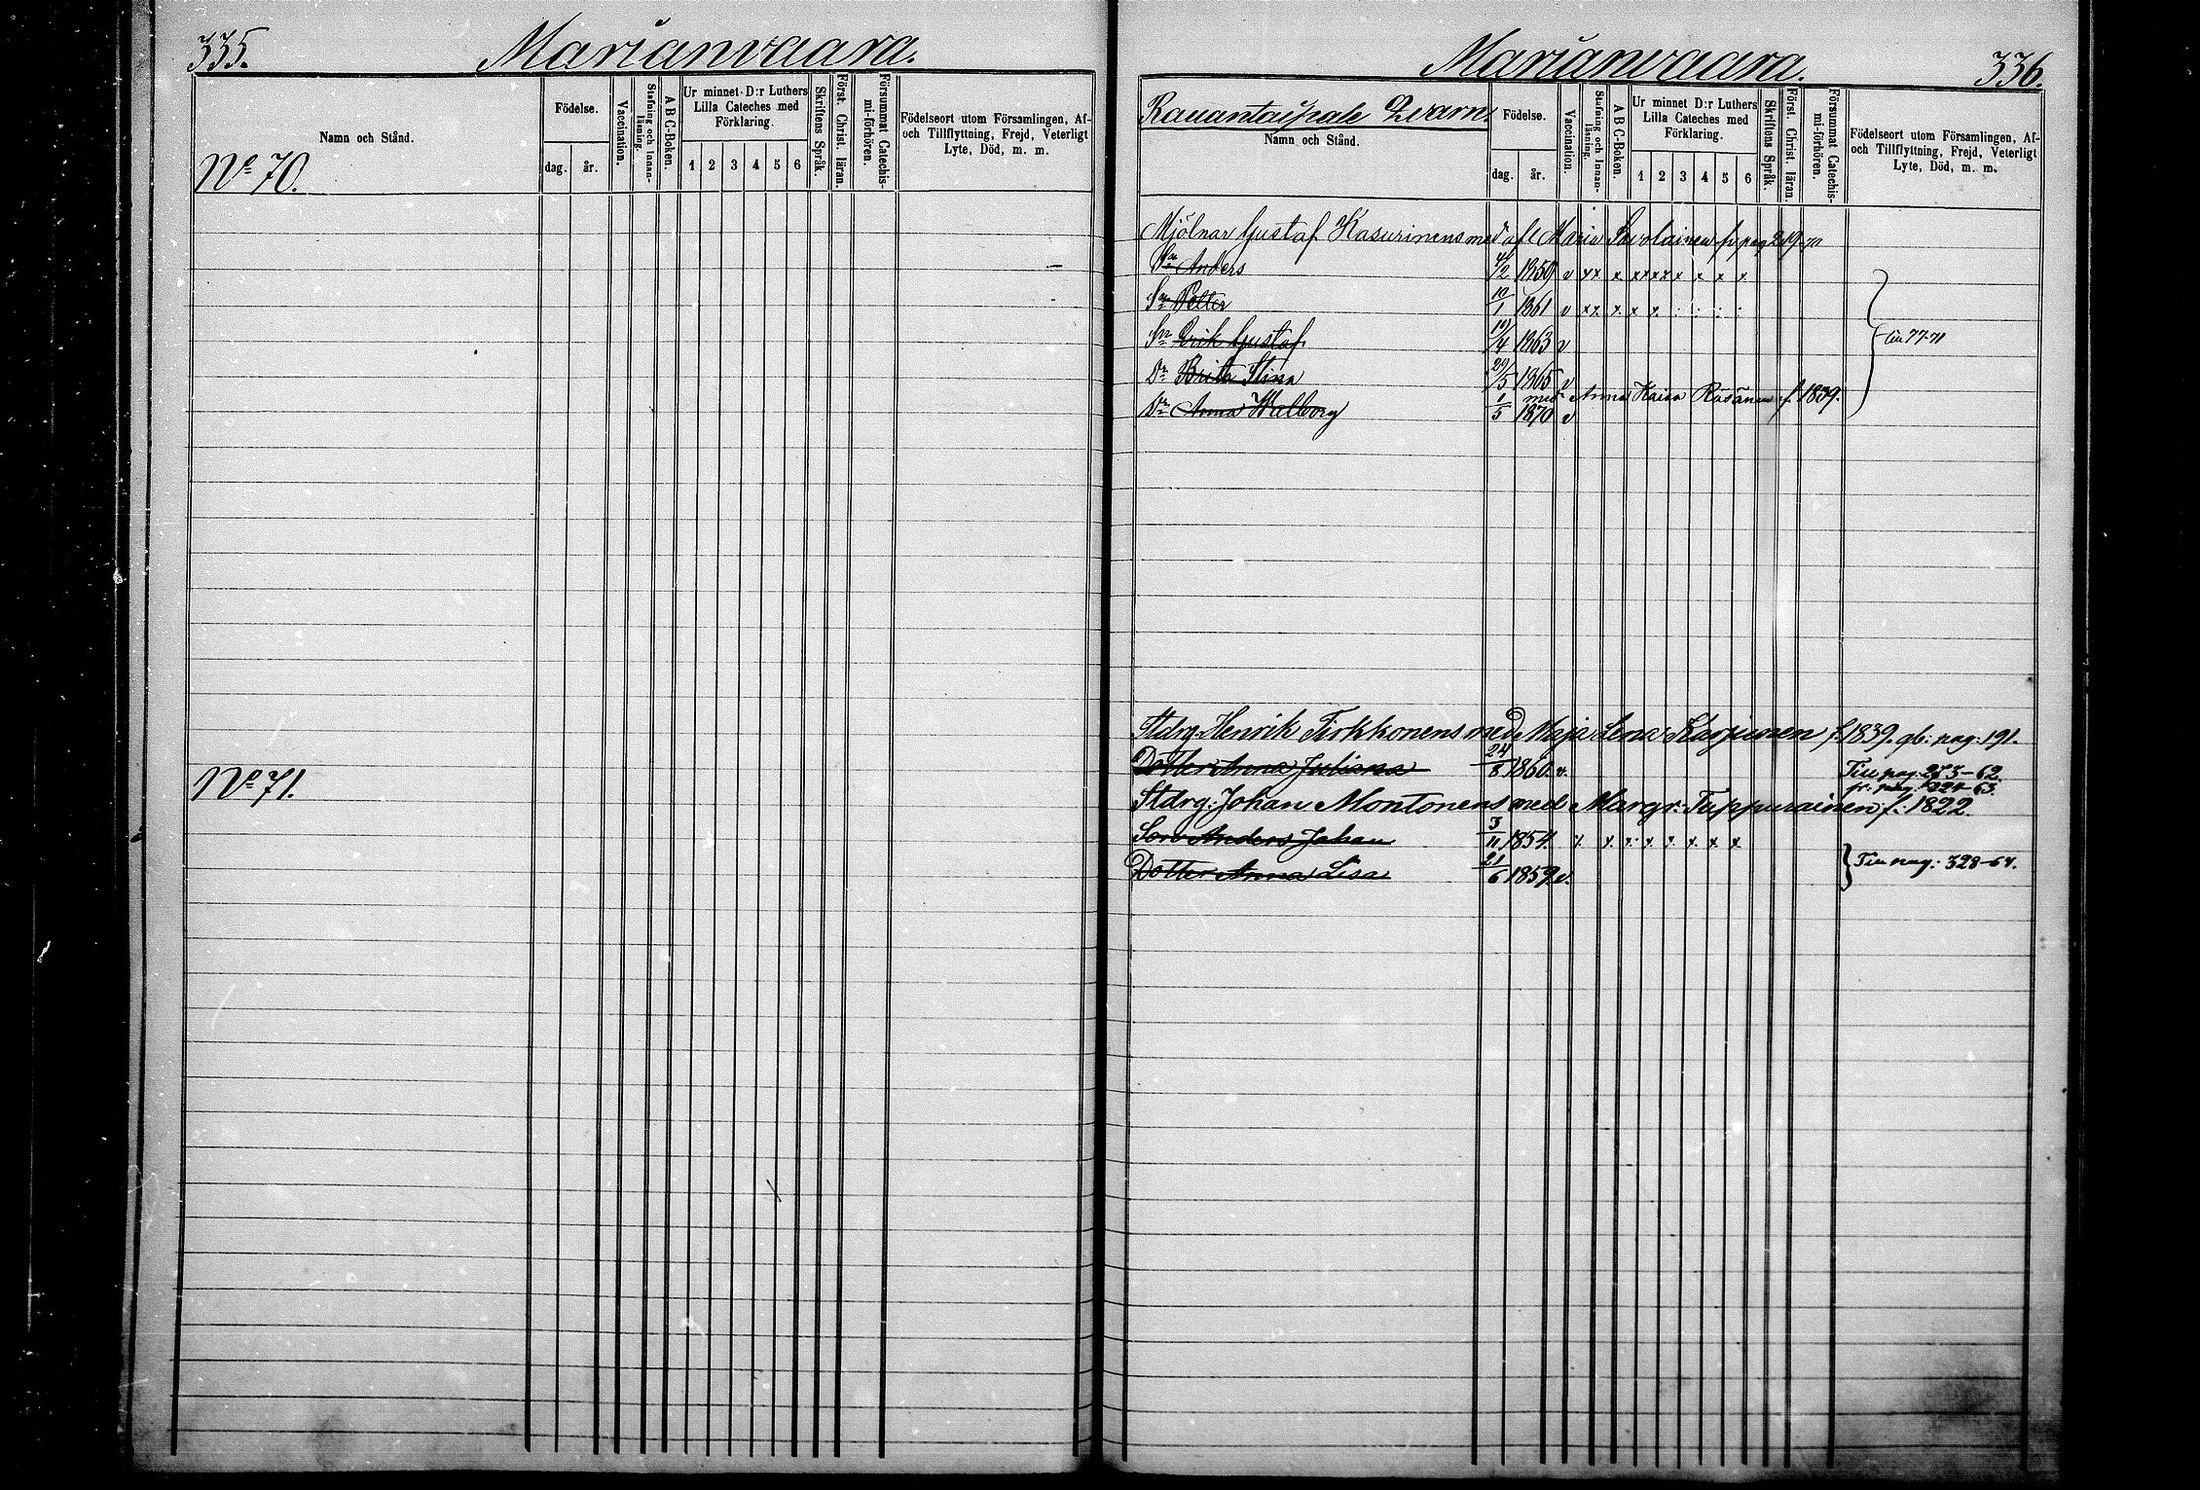 335.
Marianvaara.
Namn och Stånd.
Födelse.
dag. år.
Vaccination.
Stafning och Innan-läsning.
A B C-Boken.
Ur minnet D:r Luthers Lilla Cateches med Förklaring.
1 2 3 4 5 6
Skriftens Språk.
Först. Christ. läran.
Försummat Catechis-mi-förhören.
Födelseort utom Församlingen, Af-
och Tillflyttning, Frejd, Veterligt
Lyte, Död, m. m.
No 70.
No 71.
Marianvaara.
336.
Rauantaipale Qvarn
Namn och Stånd.
Födelse.
dag. år.
Vaccination.
Stafning och Innan-läsning.
A B C-Boken.
Ur minnet D:r Luthers Lilla Cateches med Förklaring.
1 2 3 4 5 6
Skriftens Språk.
Först. Christ. läran.
Försummat Catechis-mi-förhören.
Födelseort utom Församlingen, Af-
och Tillflyttning, Frejd, Veterligt
Lyte, Död, m. m.
Mjölnar Gustaf Kasurinens med afl Maria Savolainen fr pag 249-70
Sn Anders 1859 v xx x xxxx x x x x
Sn Petter 10/1 1861 v xx x x x
Sn Erik Gustaf 19/4 1863 v till 77-71
Dr Brita Stina 29/5 1865 v
med Anna Kaisa Räsänen f. 1839.
Dr Anna Walborg 1/5 1870 v
Stdrg. Henrik Tirkkonens med Maja Lena Karpinen f. 1839. gb. pag: 191.
Dotter Anna Juliana 24/8 1860. v. Till pag: 273-62.
fr. pag. 224-63.
Stdrg: Johan Montonens med Margr: Tuppurainen f. 1822.
Son Anders Johan 3/11 1854 x x x x x x x x
Dotter Anna Lisa 21/6 1859. v. Till pag: 328-64.